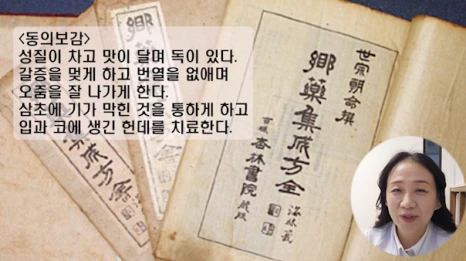 <동의보감>
성질이 차고 맛이 달며 독이 있다.
갈증을 멎게 하고 번열을 없애며
오줌을 잘 나가게 한다.
삼초에 기가 막힌 것을 통하게 하고
입과 코에 생긴 헌데를 치료한다.
世宗朝命撰
鄕藥集成方全
杏林書院
鄕藥集成方